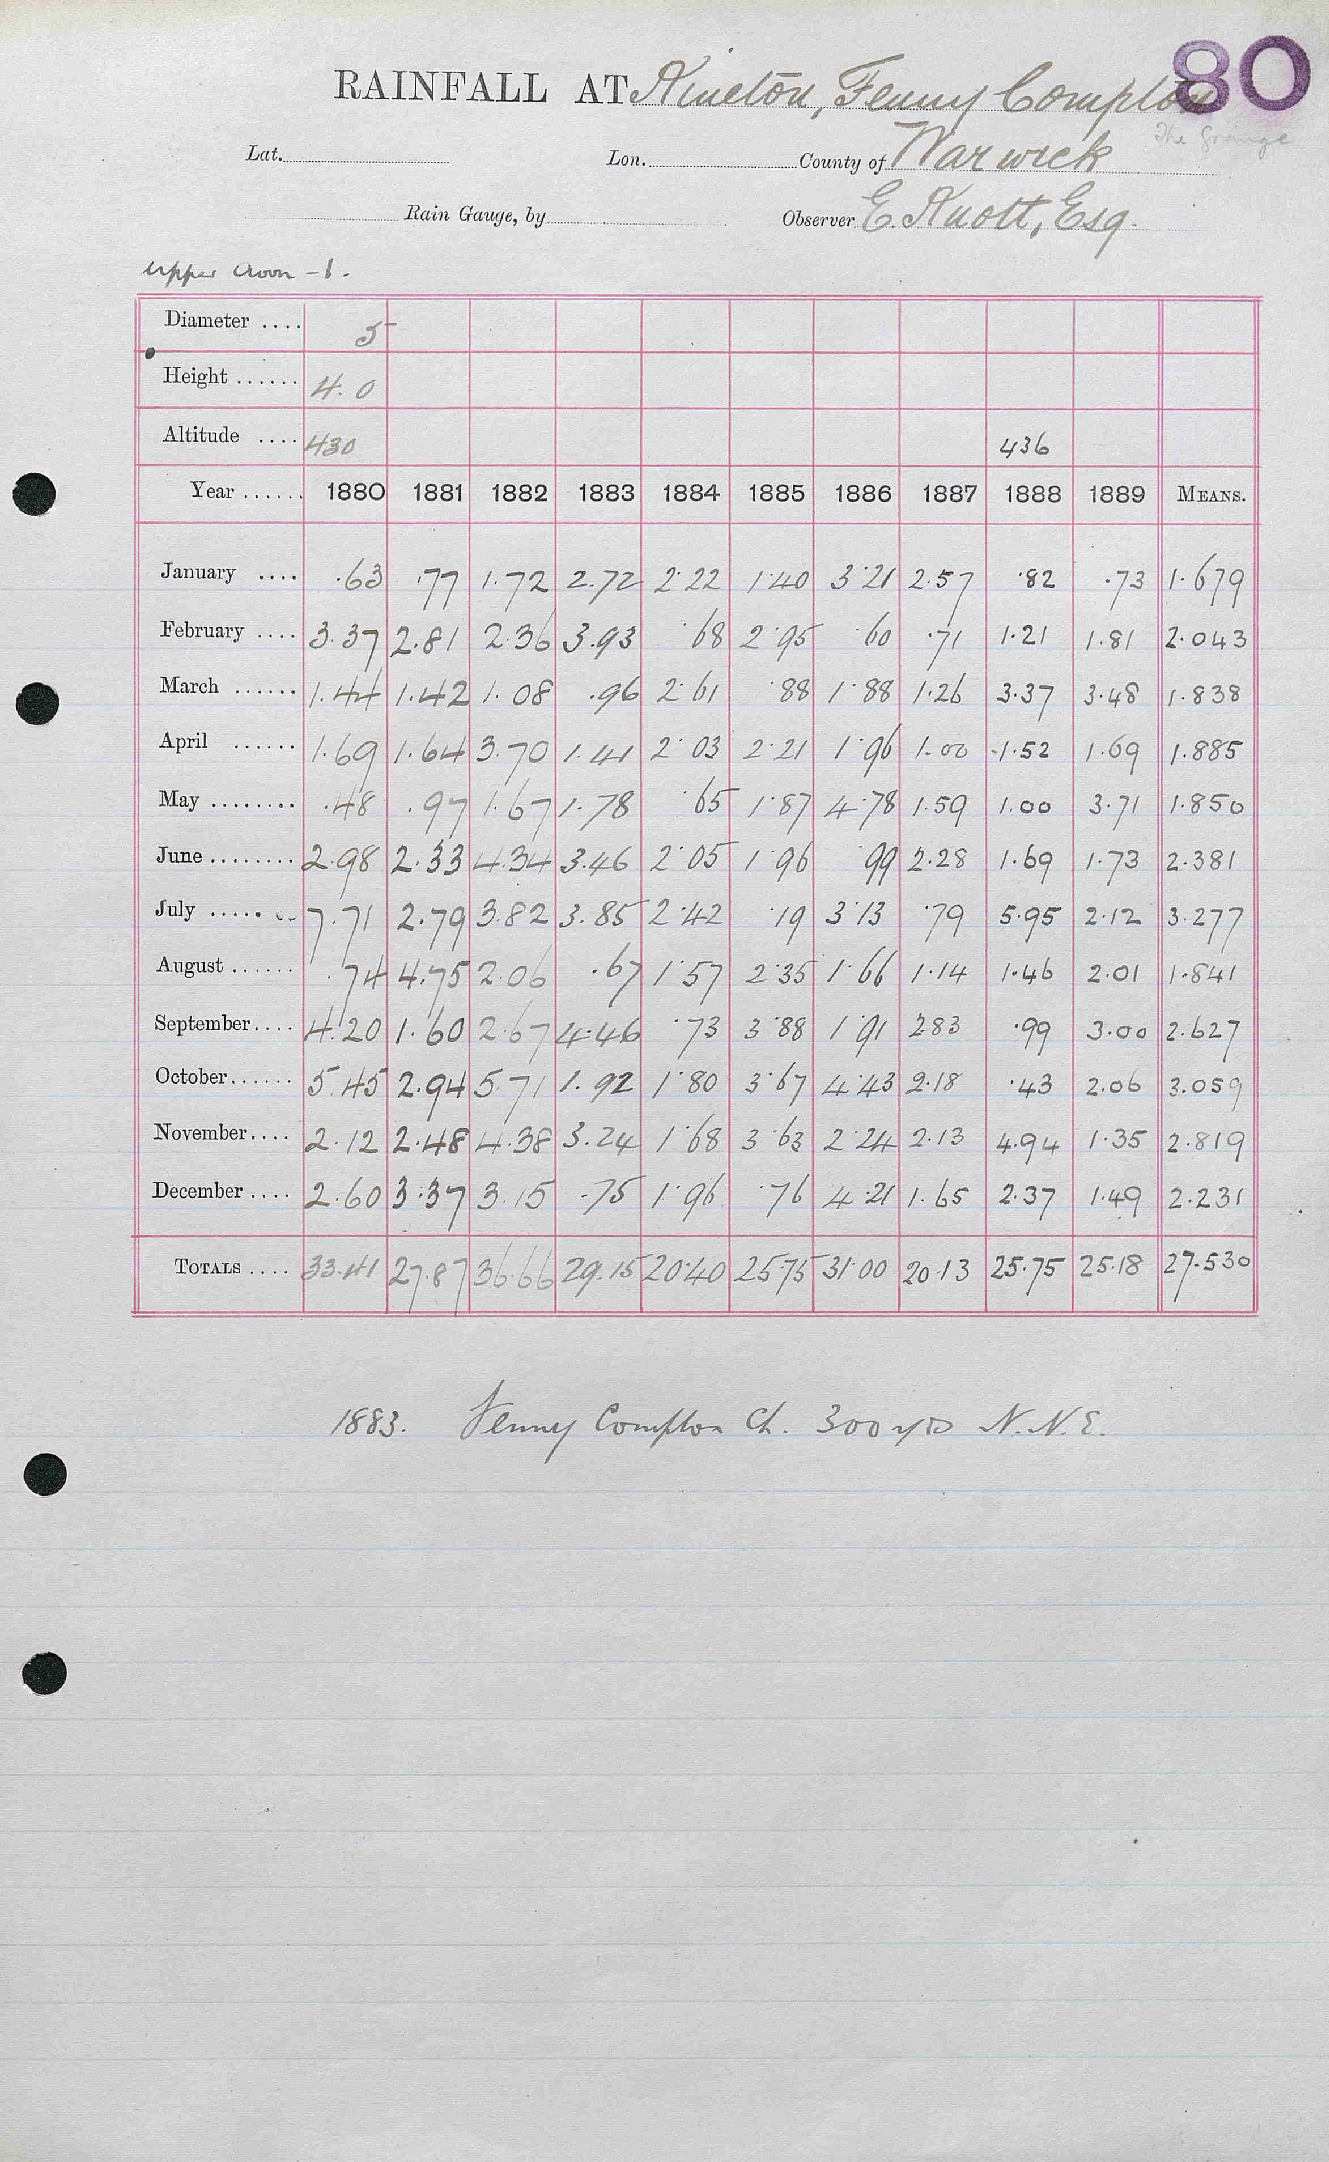 80
RAINFALL AT Kineton, Fenny Compton
The Grange
Lat. Lon. County of Warwick
Rain Gauge, by Observer E. Knott, Esq.
Upper Avon - 1.
Diameter .... 5
Height ...... 4.0
Altitude .... 430 436
Year ...... 1880 1881 1882 1883 1884 1885 1886 1887 1888 1889 MEANS.
January .... .63 .77 1.72 2.72 2.22 1.40 3.21 2.57 .82 .73 1.679
February .... 3.37 2.81 2.36 3.93 .68 2.95 .60 .71 1.21 1.81 2.043
March ...... 1.44 1.42 1.08 .96 2.61 .88 1.88 1.26 3.37 3.48 1.838
April ...... 1.69 1.64 3.70 1.41 2.03 2.21 1.96 1.00 1.52 1.69 1.885
May ........ .48 .97 1.67 1.78 .65 1.87 4.78 1.59 1.00 3.71 1.850
June ........ 2.98 2.33 4.34 3.46 2.05 1.96 .99 2.28 1.69 1.73 2.381
July ........ 7.71 2.79 3.82 3.85 2.42 .19 3.13 .79 5.95 2.12 3.277
August ...... .74 4.75 2.06 .67 1.57 2.35 1.66 1.14 1.46 2.01 1.841
September .... 4.20 1.60 2.67 4.46 .73 3.88 1.91 2.83 .99 3.00 2.627
October ...... 5.45 2.94 5.71 1.92 1.80 3.67 4.43 2.18 .43 2.06 3.059
November .... 2.12 2.48 4.38 3.24 1.68 3.63 2.24 2.13 4.94 1.35 2.819
December .... 2.60 3.37 3.15 .75 1.96 .76 4.21 1.65 2.37 1.49 2.231
TOTALS .... 33.41 27.87 36.66 29.15 20.40 25.75 31.00 20.13 25.75 25.18 27.530
1883. Fenny Compton Ch. 300 yds N.N.E.